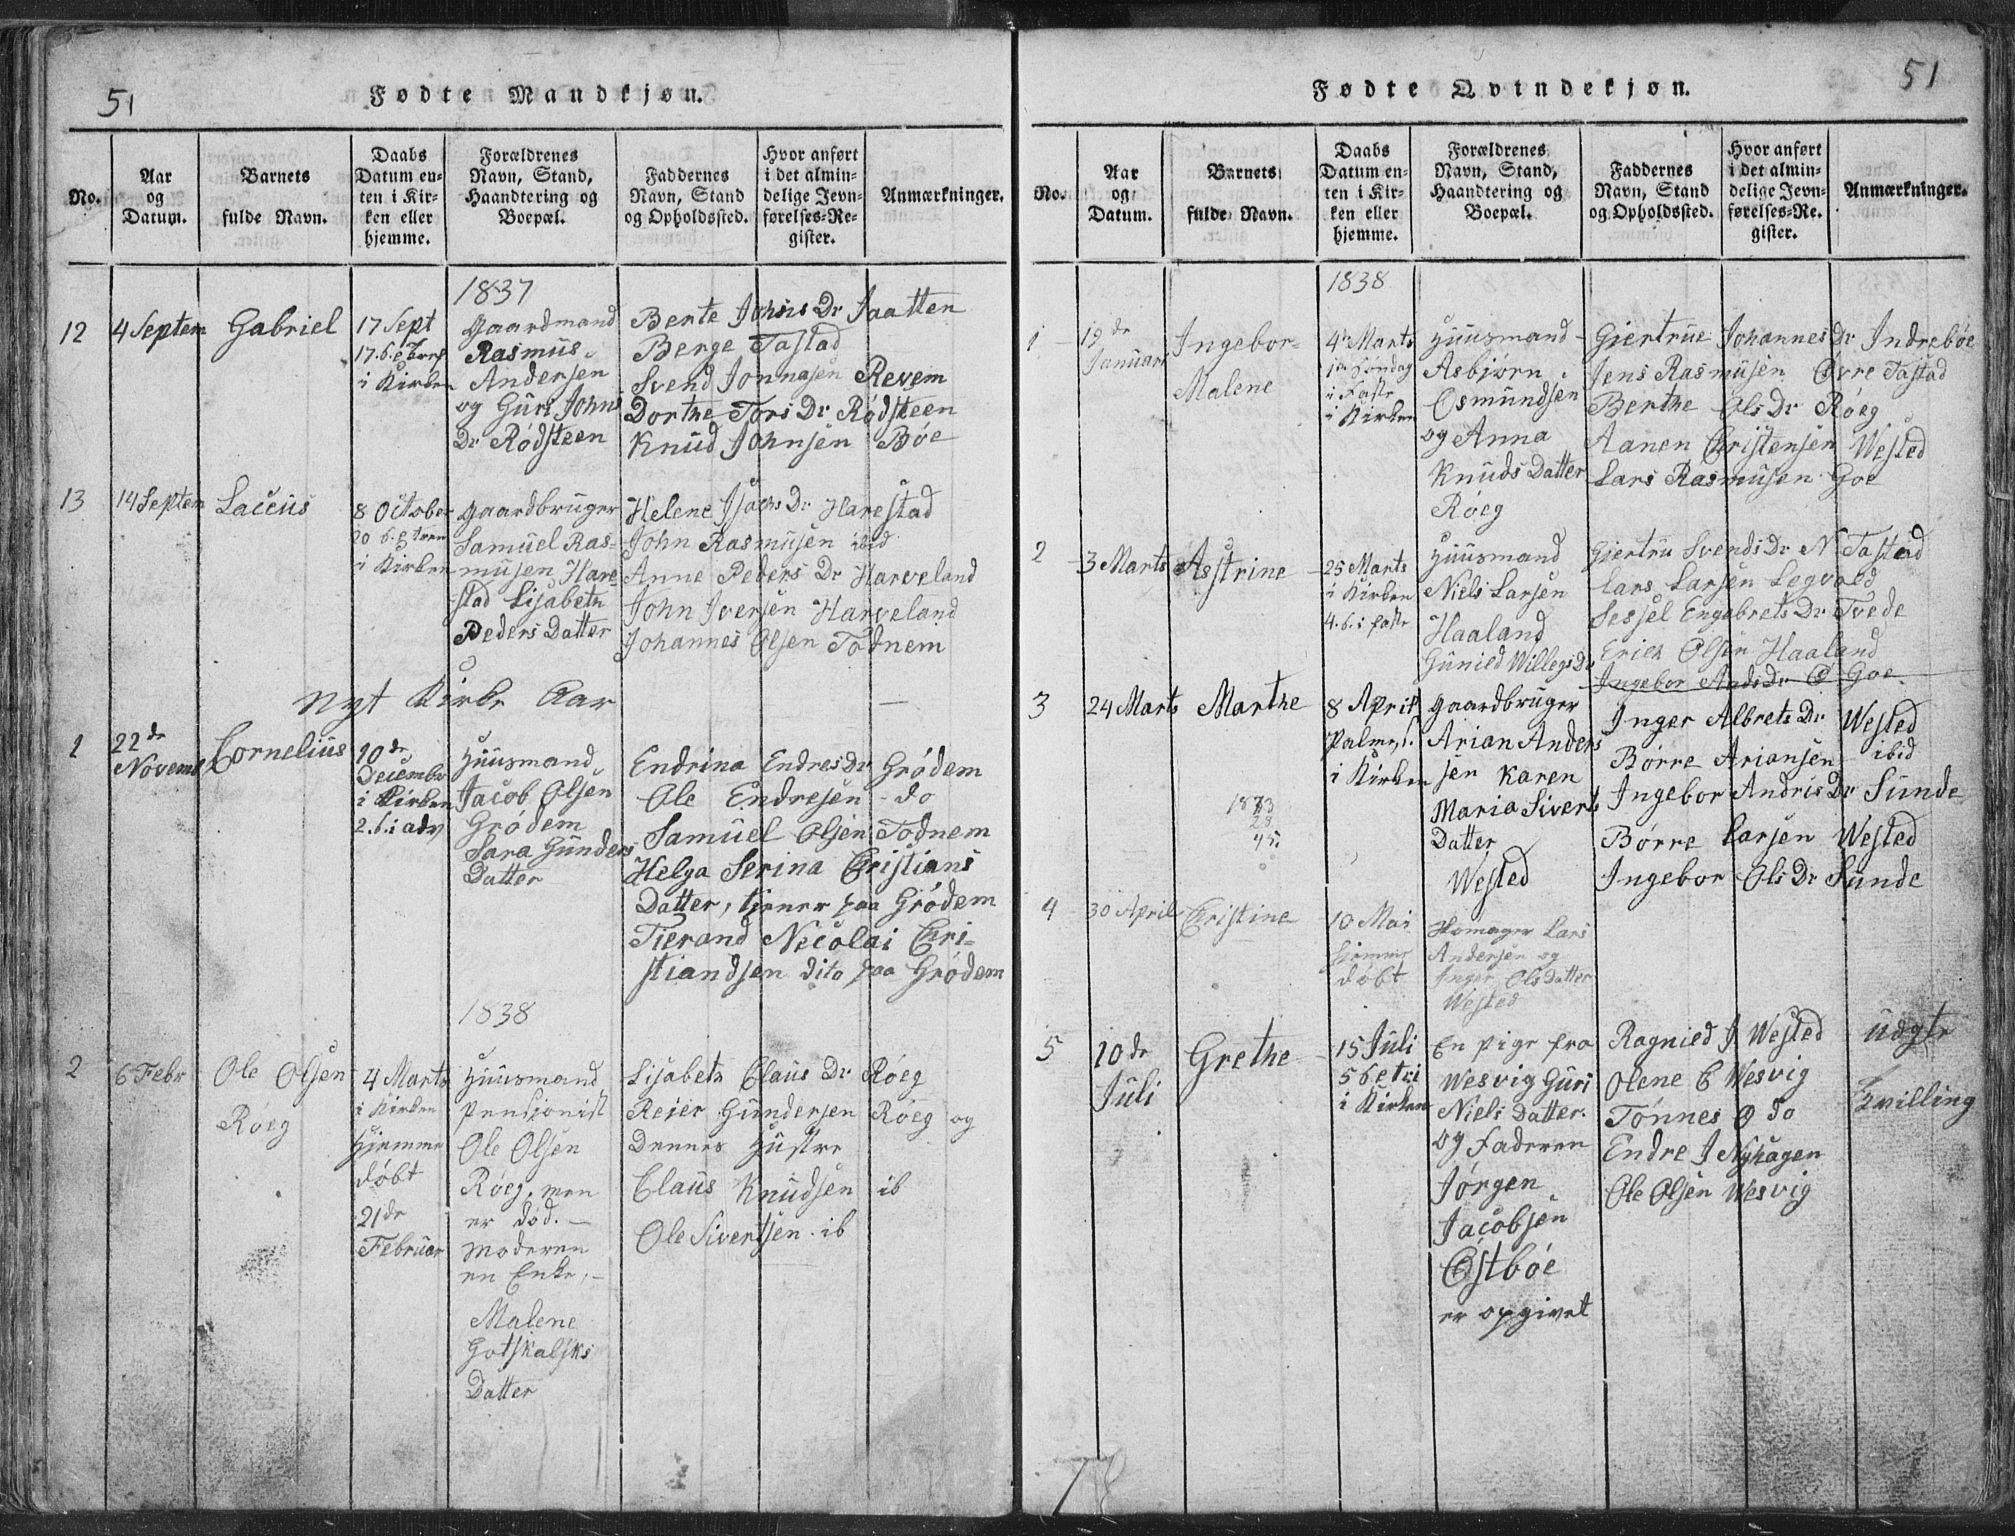 51
Fødte Mandkjøn.
No.
Aar
og
Datum.
Barnets
fulde Navn.
Daabs
Datum en-
ten i Kir-
ken eller
hjemme.
Forældrenes
Navn, Stand,
Haandtering og
Boepæl.
Faddernes
Navn, Stand
og Opholdssted.
Hvor anført
i det almin-
delige Jevn-
førelses-Re-
gister.
Anmærkninger.
1837
12
4 Septem
Gabriel
17 Sept
i Kirken
Gaardmand
Rasmus
Andersen
og Guri Johns
Dr Rödsteen
Berte Johns Dr Jaatten
Berge Tastad
Svend Jonnasen Revem
Dorthe Tors Dr Rödsteen
Knud Johnsen Böe
13
14 Septem
8 October
i Kirken
Gaardbruger
Samuel Ras-
musen Hare
stad Lisabeth
Peders Datter
Helene Isachs Dr Harestad
John Rasmusen ibid
Anne Peders Dr Harveland
John Iversen Harveland
Johannes Olsen Todnem
Nyt Kirke Aar
1
22de
Novemb
Cornelius
10de
December
i Kirken
2. s. i adv
Huusmand
Jacob Olsen
Grödem
Sara Gunders
Datter
Endrina Endres Dr Grödem
Ole Endresen - do
Samuel Olsen Todnem
Helga Serina Cristians
Datter, tjener paa Grödem
Tierand Necolai Cri-
stiandsen dito paa Grödem
1838
2
6 Febr
Ole Olsen
Röeg
4 Marts
i Kirken
Hjemme
döbt
21de
Februar
Huusmand
Pensionist
Ole Olsen
Röeg, men
er död. -
Moderen
en Enke, -
Malene
Gotskalsks
Datter
Lisabeth Claus Dr Röeg
Reier Gundersen Röeg og
Dennes Hustre
Claus Knudsen ib
Ole Sivertsen ib
51
Fødte Qvindekjøn.
No.
Aar
og
Datum.
Barnets
fulde Navn.
Daabs
Datum en-
ten i Kir-
ken eller
hjemme.
Forældrenes
Navn, Stand,
Haandtering og
Boepæl.
Faddernes
Navn, Stand
og Opholdssted.
Hvor anført
i det almin-
delige Jevn-
førelses-Re-
gister.
Anmærkninger.
1838
1
19de
Januari
Ingebor-
Malene
4de Marts
1ste Söndag
i Faste
i Kirken
Huusmand
Asbjörn
Osmundsen
og Anna
Knuds Datter
Röeg
Giertrue Johannes Dr Indreböe
Jens Rasmusen Övre Tastad
Berthe Ols Dr Röeg
Aanen Christensen Wested
Lars Rasmusen Goe
2
3 Marts
Asstrine
25 Marts
i Kirken
4. s. i faste
Huusmand
Niels Larsen
Haaland
Gunied Willegs Dr
Giertru Svends Dr N Tastad
Lars Larsen Legvold
Sessel Engebrets Dr Tvede
Erich Olsen Haaland
Ingebor Ands Dr Goe
3
24 Marts
Marthe
8 April
Palme s.
i Kirken
Gaardbruger
Arian Anders
sen Karen
Maria Siverts
Datter
Wested
Inger Albrets Dr Wested
Börre Ariansen ibid
Ingebor Andris Dr Sunde
Börre Larsen Wested
Ingebor Ols Dr Sunde
4
30 April
Cristine
10 Mai
hjemme
döbt
Lars
Andersen og
Inger Olsdatter
Wested
5
10de
Juli
Grethe
15 Juli
5 s e tri
i Kirken
En pige fra
Wesvig Guri
Niels Datter.
og Faderen
Jörgen
Jacobsen
Östböe
er opgivet
Ragnied J Wested
Olene C Wesvig
Tönnes O do
Endre J Nyhagen
Ole Olsen Wesvig
Udgte
Tvilling